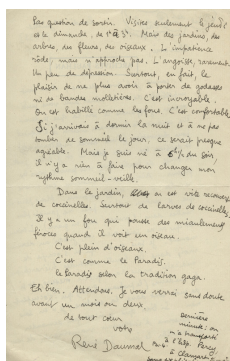 Pas question de sortir. Visites seulement le jeudi
et le dimanche, de 1h à 3h. Mais des jardins, des
arbres, des fleurs, des oiseaux. L'impatience
rôde, mais n'approche pas. L'angoisse, rarement.
Un peu de dépression. Surtout, en fait, le
plaisir de ne plus avoir à porter de godasses
ni de bandes molletières. C'est incroyable.
On est habillé comme les fous. C'est confortable.
Si j'arrivais à dormir la nuit et à ne pas
tomber de sommeil le jour, ce serait presque
agréable. Mais je suis né à 6h ½ du soir,
il n'y a rien à faire pour changer mon
rythme sommeil-veille.
Dans le jardin, on est vite recouvert
de coccinelles. Surtout de larves de coccinelles.
Il y a un fou qui pousse des miaulements
féroces quand il voit un oiseau.
C'est plein d'oiseaux.
C'est comme le Paradis.
le Paradis selon la tradition gaga.
Eh bien. Attendons. Je vous verrai sans doute
avant un mois ou deux.
de tout cœur
votre
René Daumal
dernière
minute : on
m'a transféré
à l'hôp. Percy
à Clamart